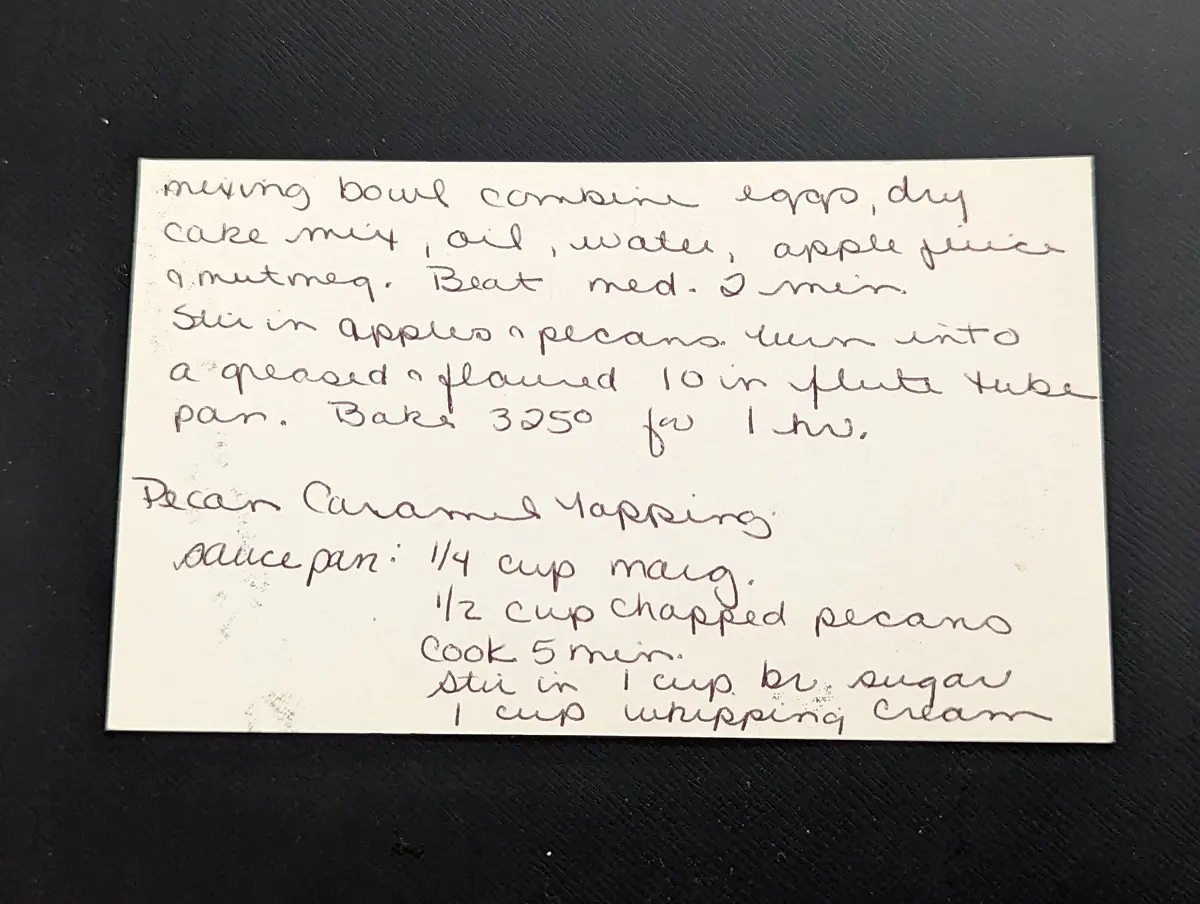 mixing bowl combine eggs, dry
cake mix, oil, water, apple juice
& nutmeg. Beat med. 2 min.
Stir in apples & pecans. turn into
a greased & floured 10 in flute tube
pan. Bake 325° for 1 hr.
Pecan Caramel Topping
saucepan: 1/4 cup marg.
1/2 cup chopped pecans
Cook 5 min.
stir in 1 cup br. sugar
1 cup whipping cream